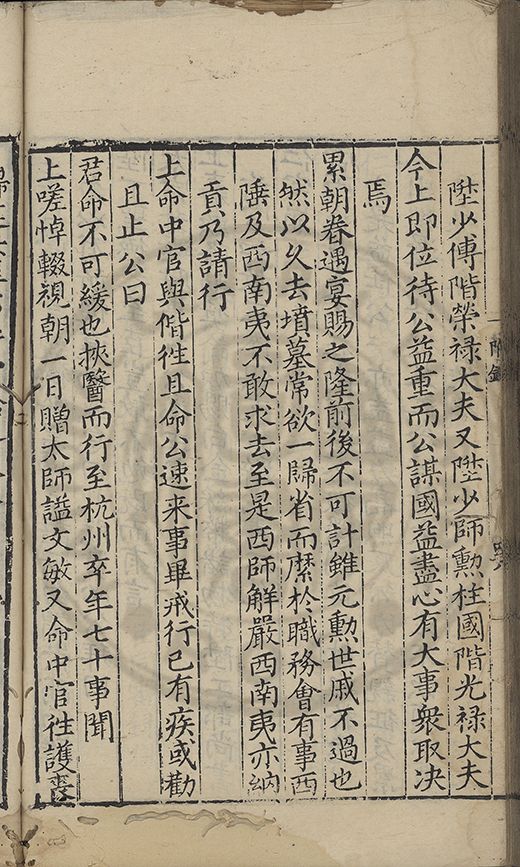 陞少傅階榮禄大夫又陞少師勲柱國階光禄大夫
今上即位待公益重而公謀國益盡心有大事衆取决
焉
累朝眷遇宴賜之隆前後不可計雖元勲世戚不過也
然以久去墳墓常欲一歸省而縻於職務會有事西
陲及西南夷不敢求去至是西師解嚴西南夷亦納
貢乃請行
上命中官與偕徃且命公速来事畢戒行已有疾或勸
且止公曰
君命不可緩也挾醫而行至杭州卒年七十事聞
上嗟悼輟視朝一日贈太師謚文敏又命中官徃護喪
附錄